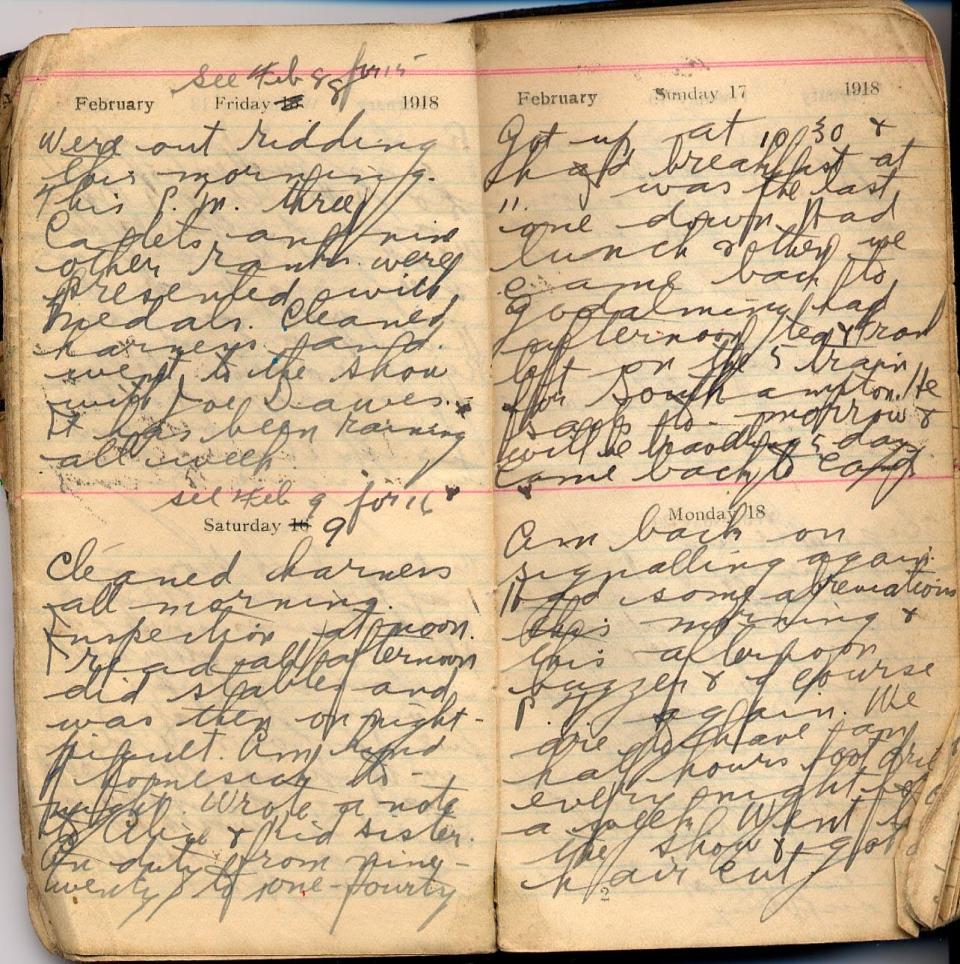 see Feb 8 for 15
February Friday 15 1918
Were out ridding
this morning.
This P.M. three
Cadets and nine
other ranks were
presented with
medals. Cleaned
harness and
went to the show
with Joe Dawes.
It has been raining
all week.
see Feb 9 for 16
Saturday 16 9
Cleaned harness
all morning.
Inspection at noon.
read all afternoon
did stables and
was then on night-
piquet. Am kind
homesick to-
night. Wrote a note
to Alice & kid sister.
On duty from nine-
twenty to one-fourty
February Sunday 17 1918
Got up at 10.30 &
had breakfast at
11. was the last
one down. Had
lunch & then we
came back to
Godalming had
afternoon tea &
left on the 5 train
for Southampton. He
to-morrow &
will be 5 days
Came back to camp
Monday 18
Am back on
signalling again.
Had some abreviations
this morning &
this afternoon
buzzer & course
P. again. We
are to have an
half hours foot drill
every night
a week. Went to
the show & got a
hair cut